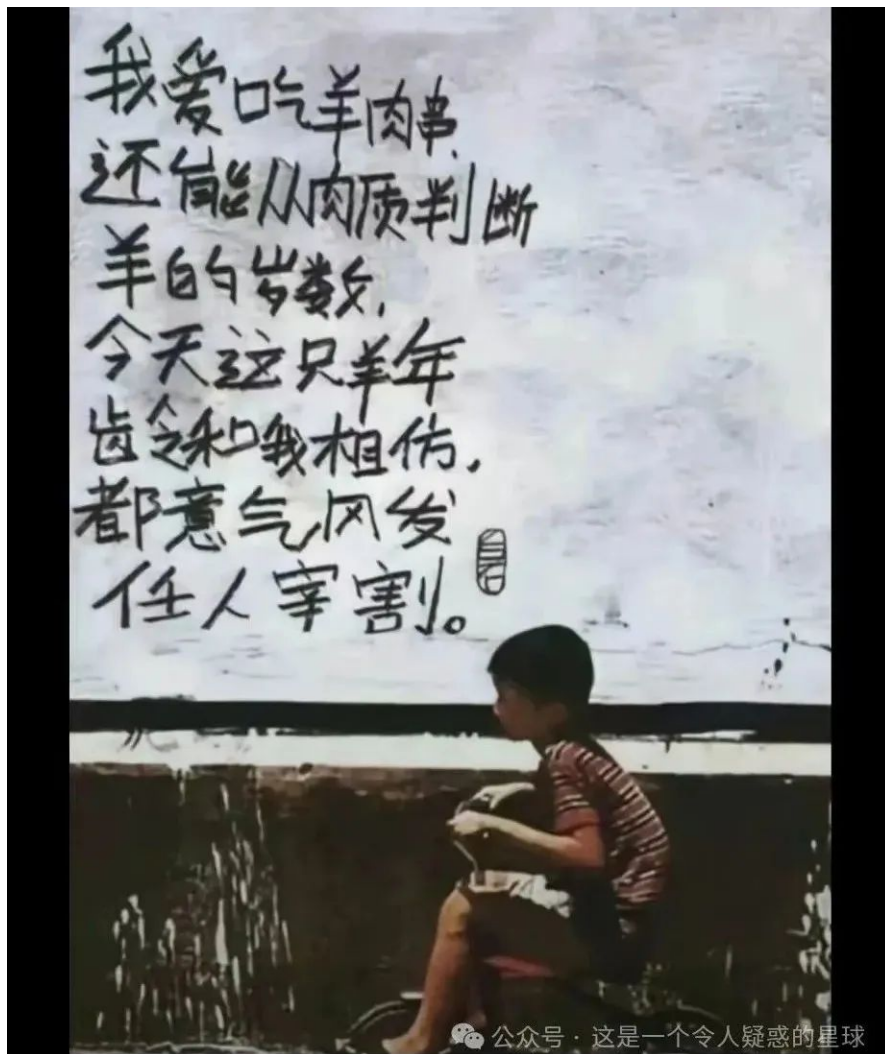 我爱吃羊肉串,
还能从肉质判断
羊的岁数,
今天这只羊年
龄和我相仿,
都意气风发
任人宰割。
公众号 · 这是一个令人疑惑的星球